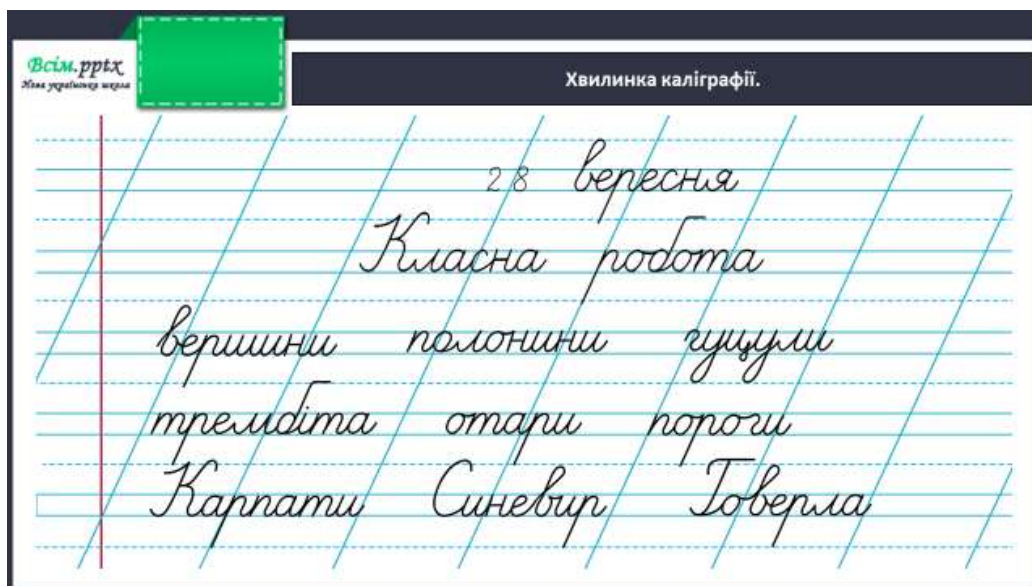 Всім.pptx
Нова українська школа
Хвилинка каліграфії.
28 вересня
Класна робота
вершини полонини гуцули
трембіта отари пороги
Карпати Синевир Говерла